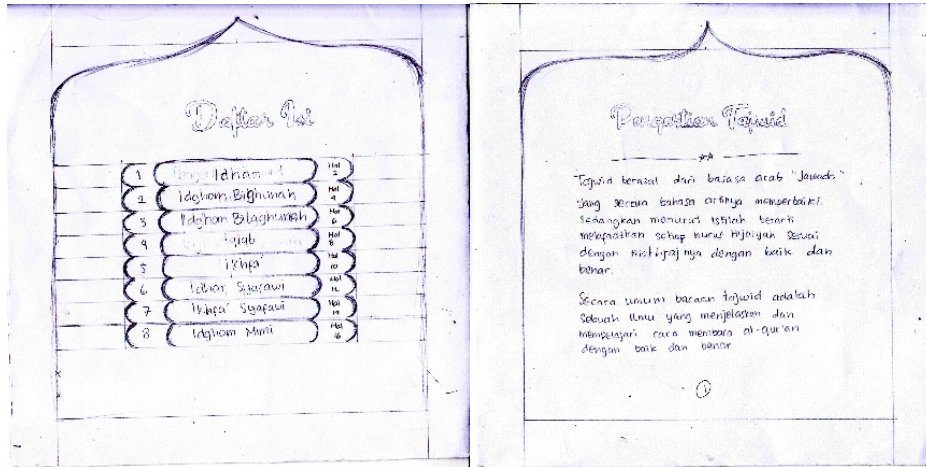 Daftar Isi
1 Idhar Hal 2
2 Idghom Bighunnah Hal 4
3 Idghom Bilaghunnah Hal 6
4 Iqlab Hal 8
5 Ikhfa' Hal 10
6 Idhar Syafawi Hal 12
7 Ikhfa' Syafawi Hal 14
8 Idghom Mimi Hal 16
Pengertian Tajwid
Tajwid berasal dari bahasa arab "Jawadh"
yang secara bahasa artinya memperbaiki.
Sedangkan menurut istilah berarti
melapadkan setiap huruf hijaiyah sesuai
dengan nya dengan baik dan
benar.
Secara umum bacaan tajwid adalah
Sebuah Ilmu yang menjelaskan dan
mempelajari cara membaca al-qur'an
dengan baik dan benar
1